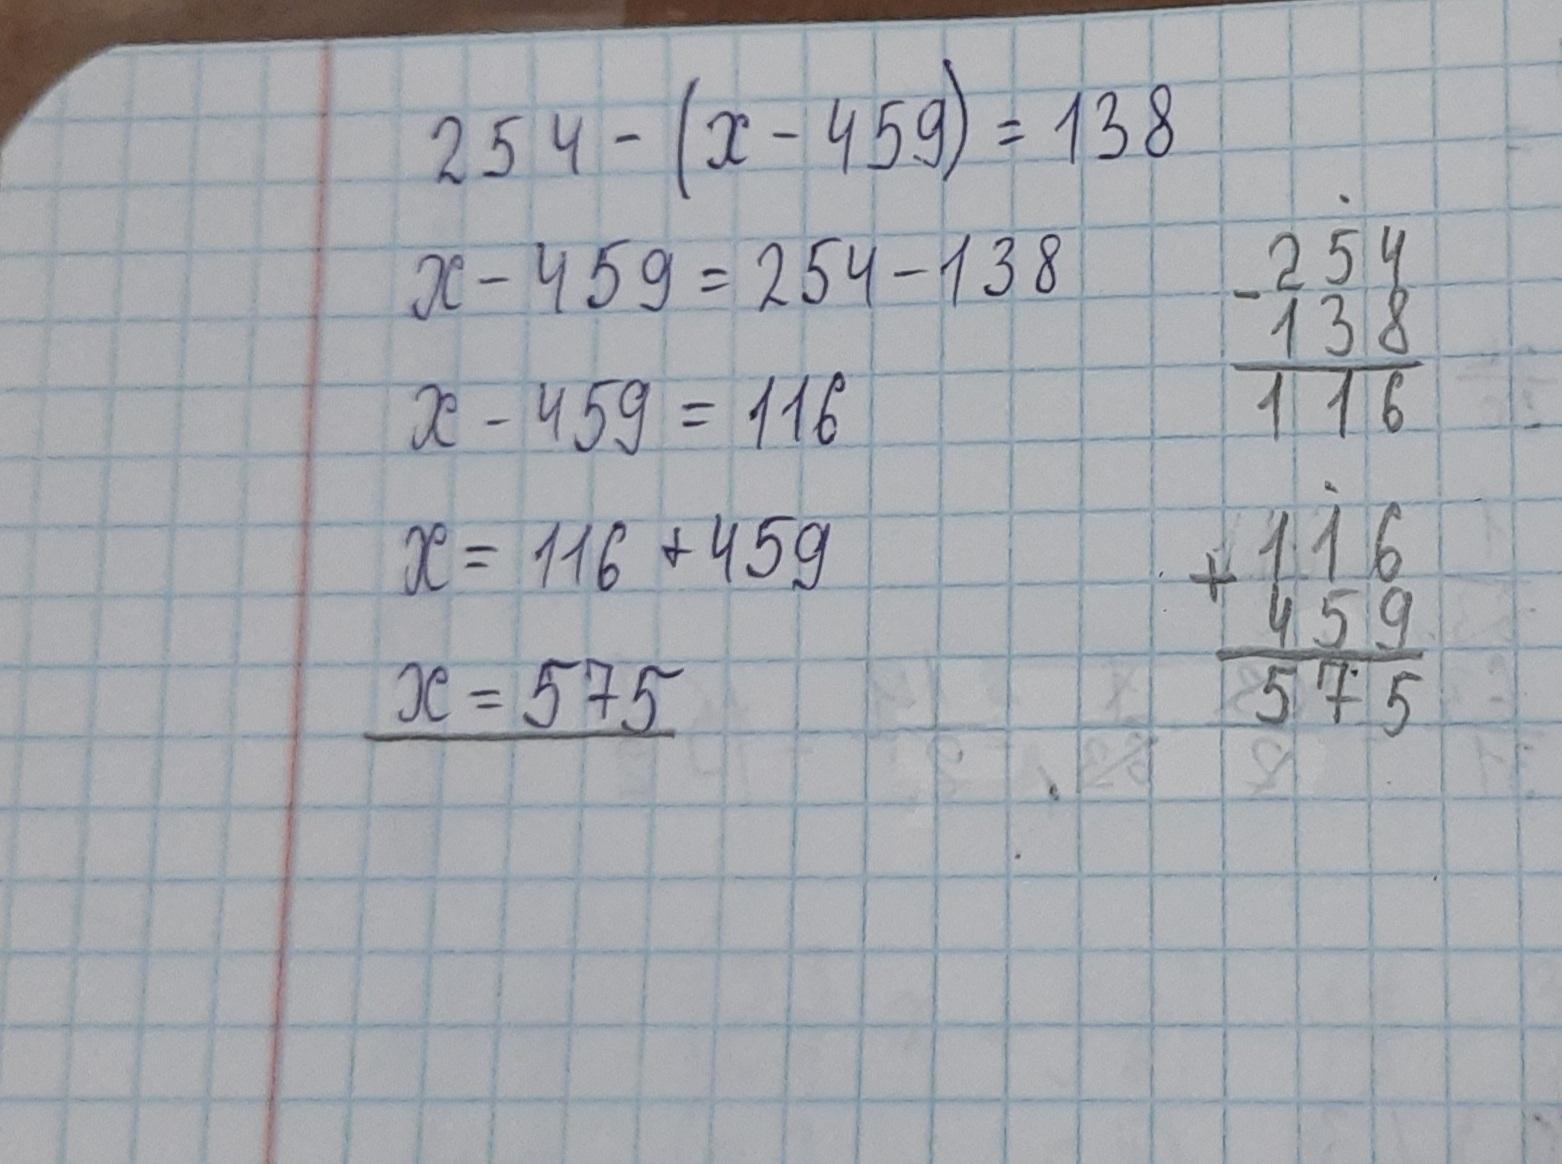 254 - (x - 459) = 138
x - 459 = 254 - 138
x - 459 = 116
x = 116 + 459
x = 575
254
- 138
116
116
+ 459
575